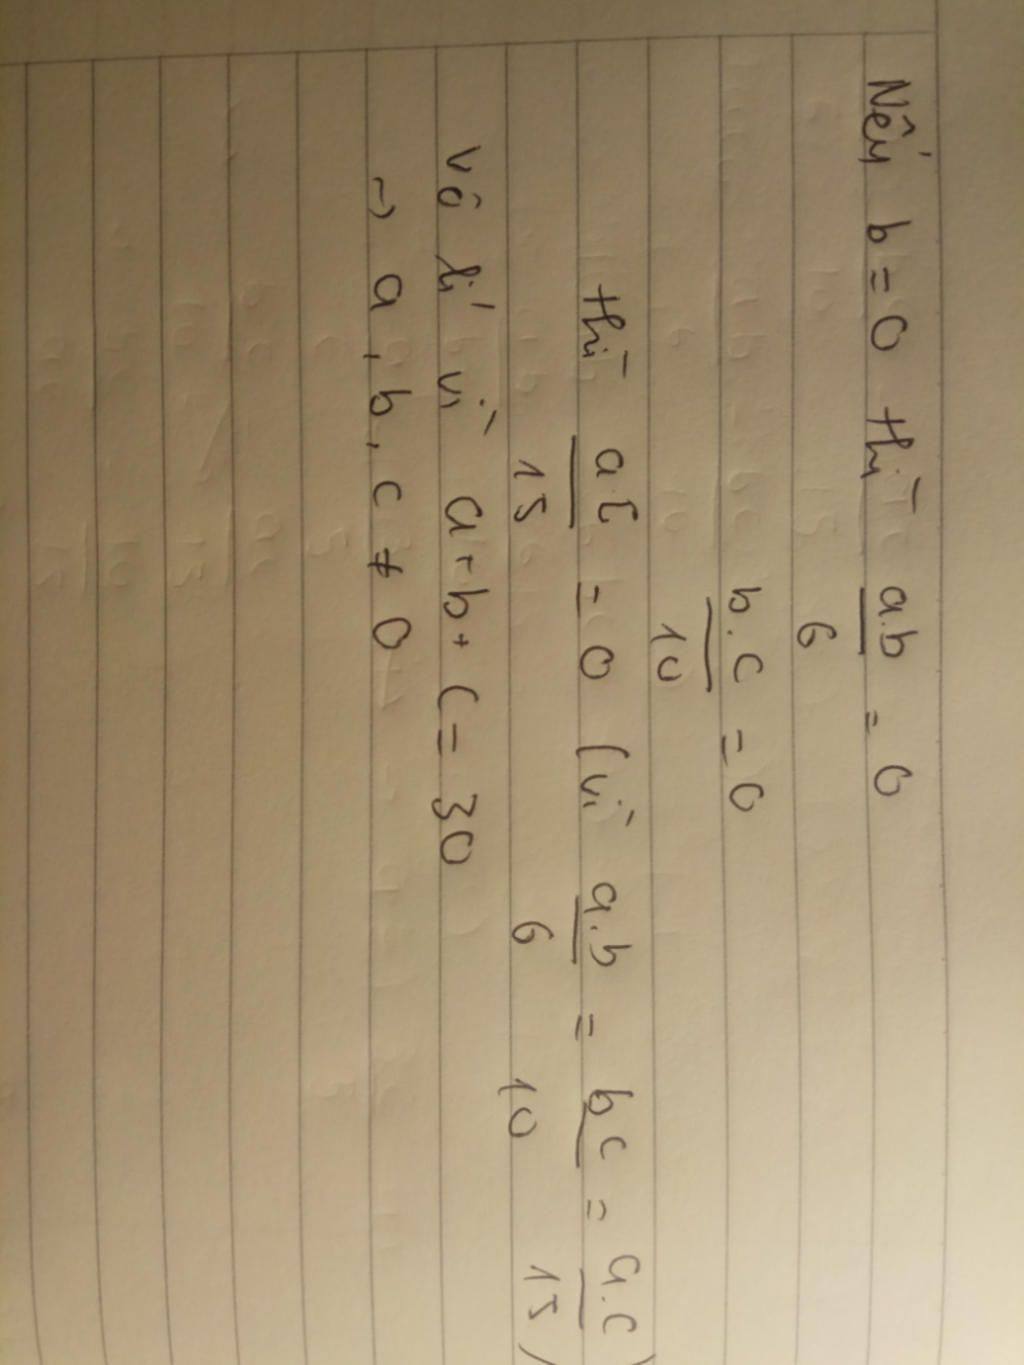 Nếu b = 0 thì a.b/6 = 0
b.c/10 = 0
thì ac/15 = 0 (vì a.b/6 = bc/10 = a.c/15)
Vô lí vì a + b + c = 30
→ a, b, c ≠ 0